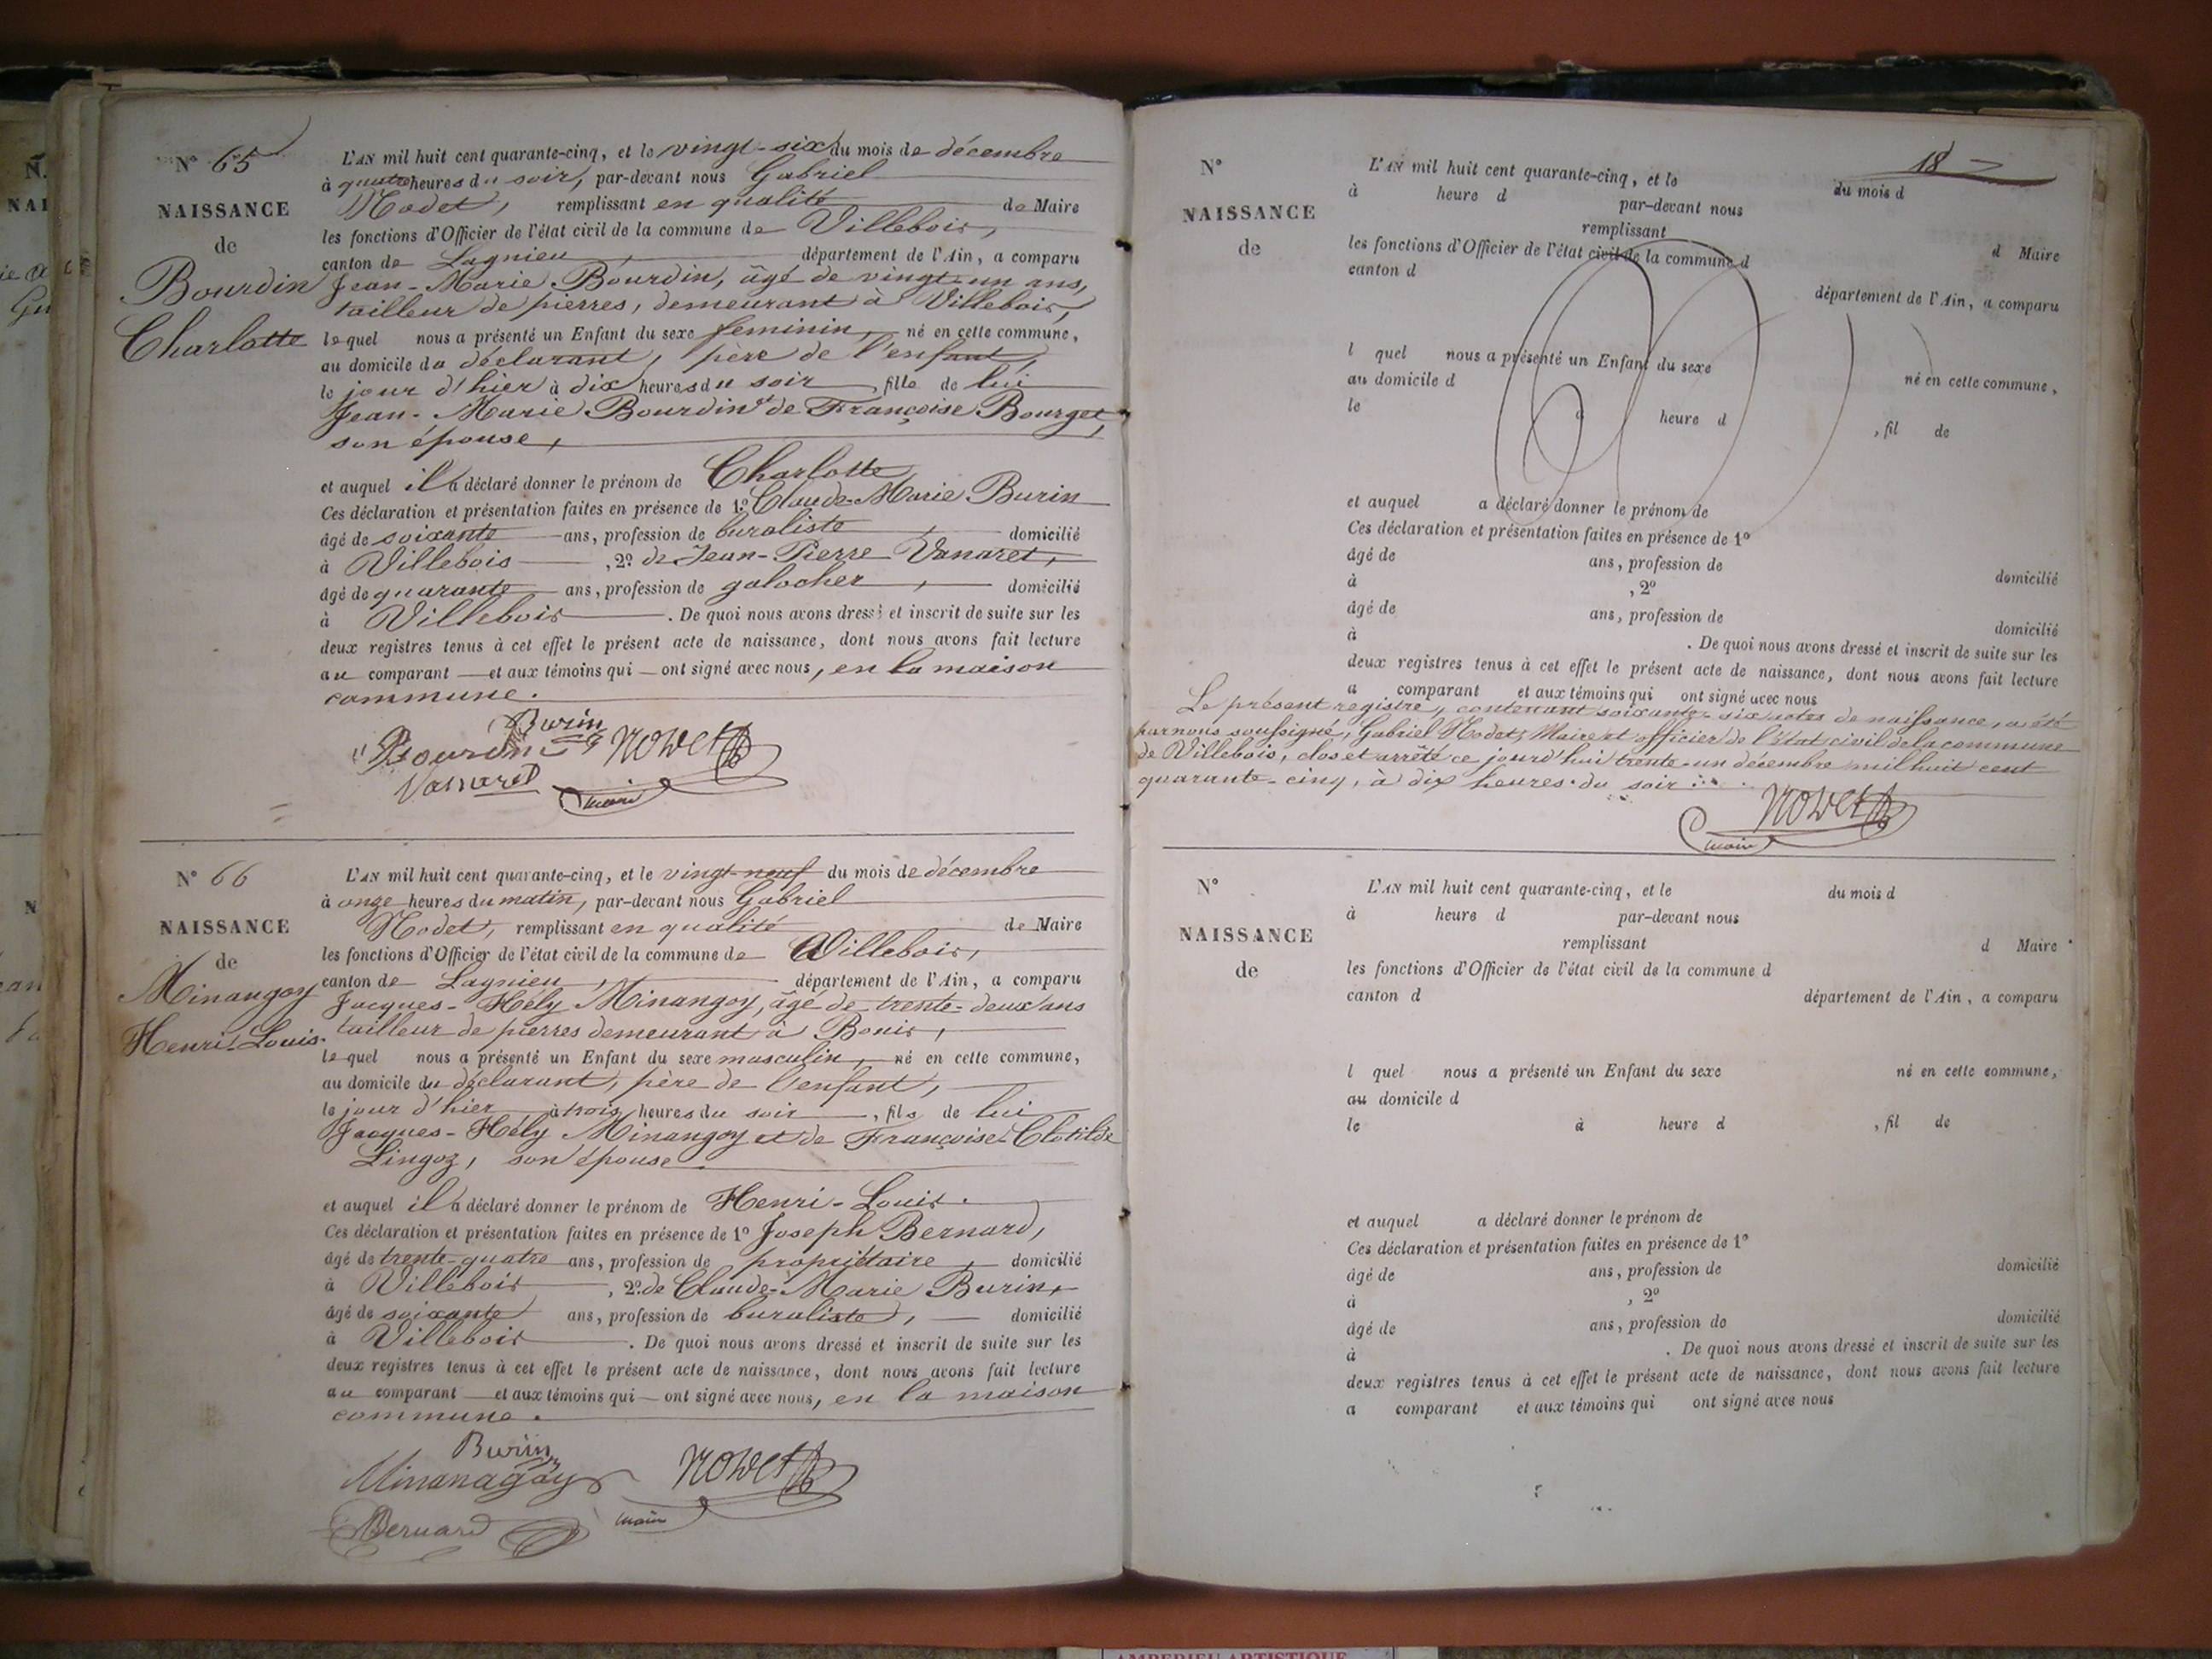 N° 65
NAISSANCE
de
Bourdin
Charlotte
L'AN mil huit cent quarante-cinq, et le vingt-six du mois de décembre
à quatre heures du soir, par-devant nous Gabriel
Nodet, remplissant en qualité de Maire
les fonctions d'Officier de l'état civil de la commune de Villebois,
canton de Lagnieu, département de l'Ain, a comparu
Jean-Marie Bourdin, âgé de vingt-un ans,
tailleur de pierres, demeurant à Villebois,
lequel nous a présenté un Enfant du sexe feminin, né en cette commune,
au domicile du déclarant, père de l'enfant,
le jour d'hier à dix heures du soir, fille de lui
Jean-Marie Bourdin et de Françoise Bourget,
son épouse,
et auquel il a déclaré donner le prénom de Charlotte
Ces déclaration et présentation faites en présence de 1° Claude-Marie Burin
âgé de soixante ans, profession de buraliste, domicilié
à Villebois, 2° de Jean-Pierre Vanaret,
âgé de quarante ans, profession de galocher, domicilié
à Villebois. De quoi nous avons dressé et inscrit de suite sur les
deux registres tenus à cet effet le présent acte de naissance, dont nous avons fait lecture
au comparant et aux témoins qui ont signé avec nous, en la maison
commune.
Burin
Bourdin Nodet
Vanaret
maire
N° 66
NAISSANCE
de
Minangoy
Henri-Louis.
L'AN mil huit cent quarante-cinq, et le vingt-neuf du mois de décembre
à onze heures du matin, par-devant nous Gabriel
Nodet, remplissant en qualité de Maire
les fonctions d'Officier de l'état civil de la commune de Villebois,
canton de Lagnieu, département de l'Ain, a comparu
Jacques-Hély Minangoy, âgé de trente-deux ans
tailleur de pierres demeurant à Bouis,
lequel nous a présenté un Enfant du sexe masculin, né en cette commune,
au domicile du déclarant, père de l'enfant,
le jour d'hier à trois heures du soir, fils de lui
Jacques-Hély Minangoy et de Françoise-Clotilde
Lingoz, son épouse
et auquel il a déclaré donner le prénom de Henri-Louis.
Ces déclaration et présentation faites en présence de 1° Joseph Bernard,
âgé de trente-quatre ans, profession de propriétaire, domicilié
à Villebois, 2° de Claude-Marie Burin,
âgé de soixante ans, profession de buraliste, domicilié
à Villebois. De quoi nous avons dressé et inscrit de suite sur les
deux registres tenus à cet effet le présent acte de naissance, dont nous avons fait lecture
au comparant et aux témoins qui ont signé avec nous, en la maison
commune.
Burin
Minanagoy Nodet
Bernard maire
18
N°
NAISSANCE
de
L'AN mil huit cent quarante-cinq, et le du mois d
à heure d par-devant nous
remplissant d Maire
les fonctions d'Officier de l'état civil de la commune d
canton d département de l'Ain, a comparu
l quel nous a présenté un Enfant du sexe né en cette commune,
au domicile d
le à heure d , fil de
et auquel a déclaré donner le prénom de
Ces déclaration et présentation faites en présence de 1°
âgé de ans, profession de domicilié
à , 2°
âgé de ans, profession de domicilié
à . De quoi nous avons dressé et inscrit de suite sur les
deux registres tenus à cet effet le présent acte de naissance, dont nous avons fait lecture
a comparant et aux témoins qui ont signé avec nous
Le présent registre, contenant soixante-six actes de naissance, a été
par nous soussigné, Gabriel Nodet, Maire et officier de l'état civil de la commune
de Villebois, clos et arrêté ce jourd'hui trente-un décembre mil huit cent
quarante-cinq, à dix heures du soir
Nodet
maire
N°
NAISSANCE
de
L'AN mil huit cent quarante-cinq, et le du mois d
à heure d par-devant nous
remplissant d Maire
les fonctions d'Officier de l'état civil de la commune d
canton d département de l'Ain, a comparu
l quel nous a présenté un Enfant du sexe né en cette commune,
au domicile d
le à heure d , fil de
et auquel a déclaré donner le prénom de
Ces déclaration et présentation faites en présence de 1°
âgé de ans, profession de domicilié
à , 2°
âgé de ans, profession de domicilié
à . De quoi nous avons dressé et inscrit de suite sur les
deux registres tenus à cet effet le présent acte de naissance, dont nous avons fait lecture
a comparant et aux témoins qui ont signé avec nous
AMPERIEU ARTISTIQUE